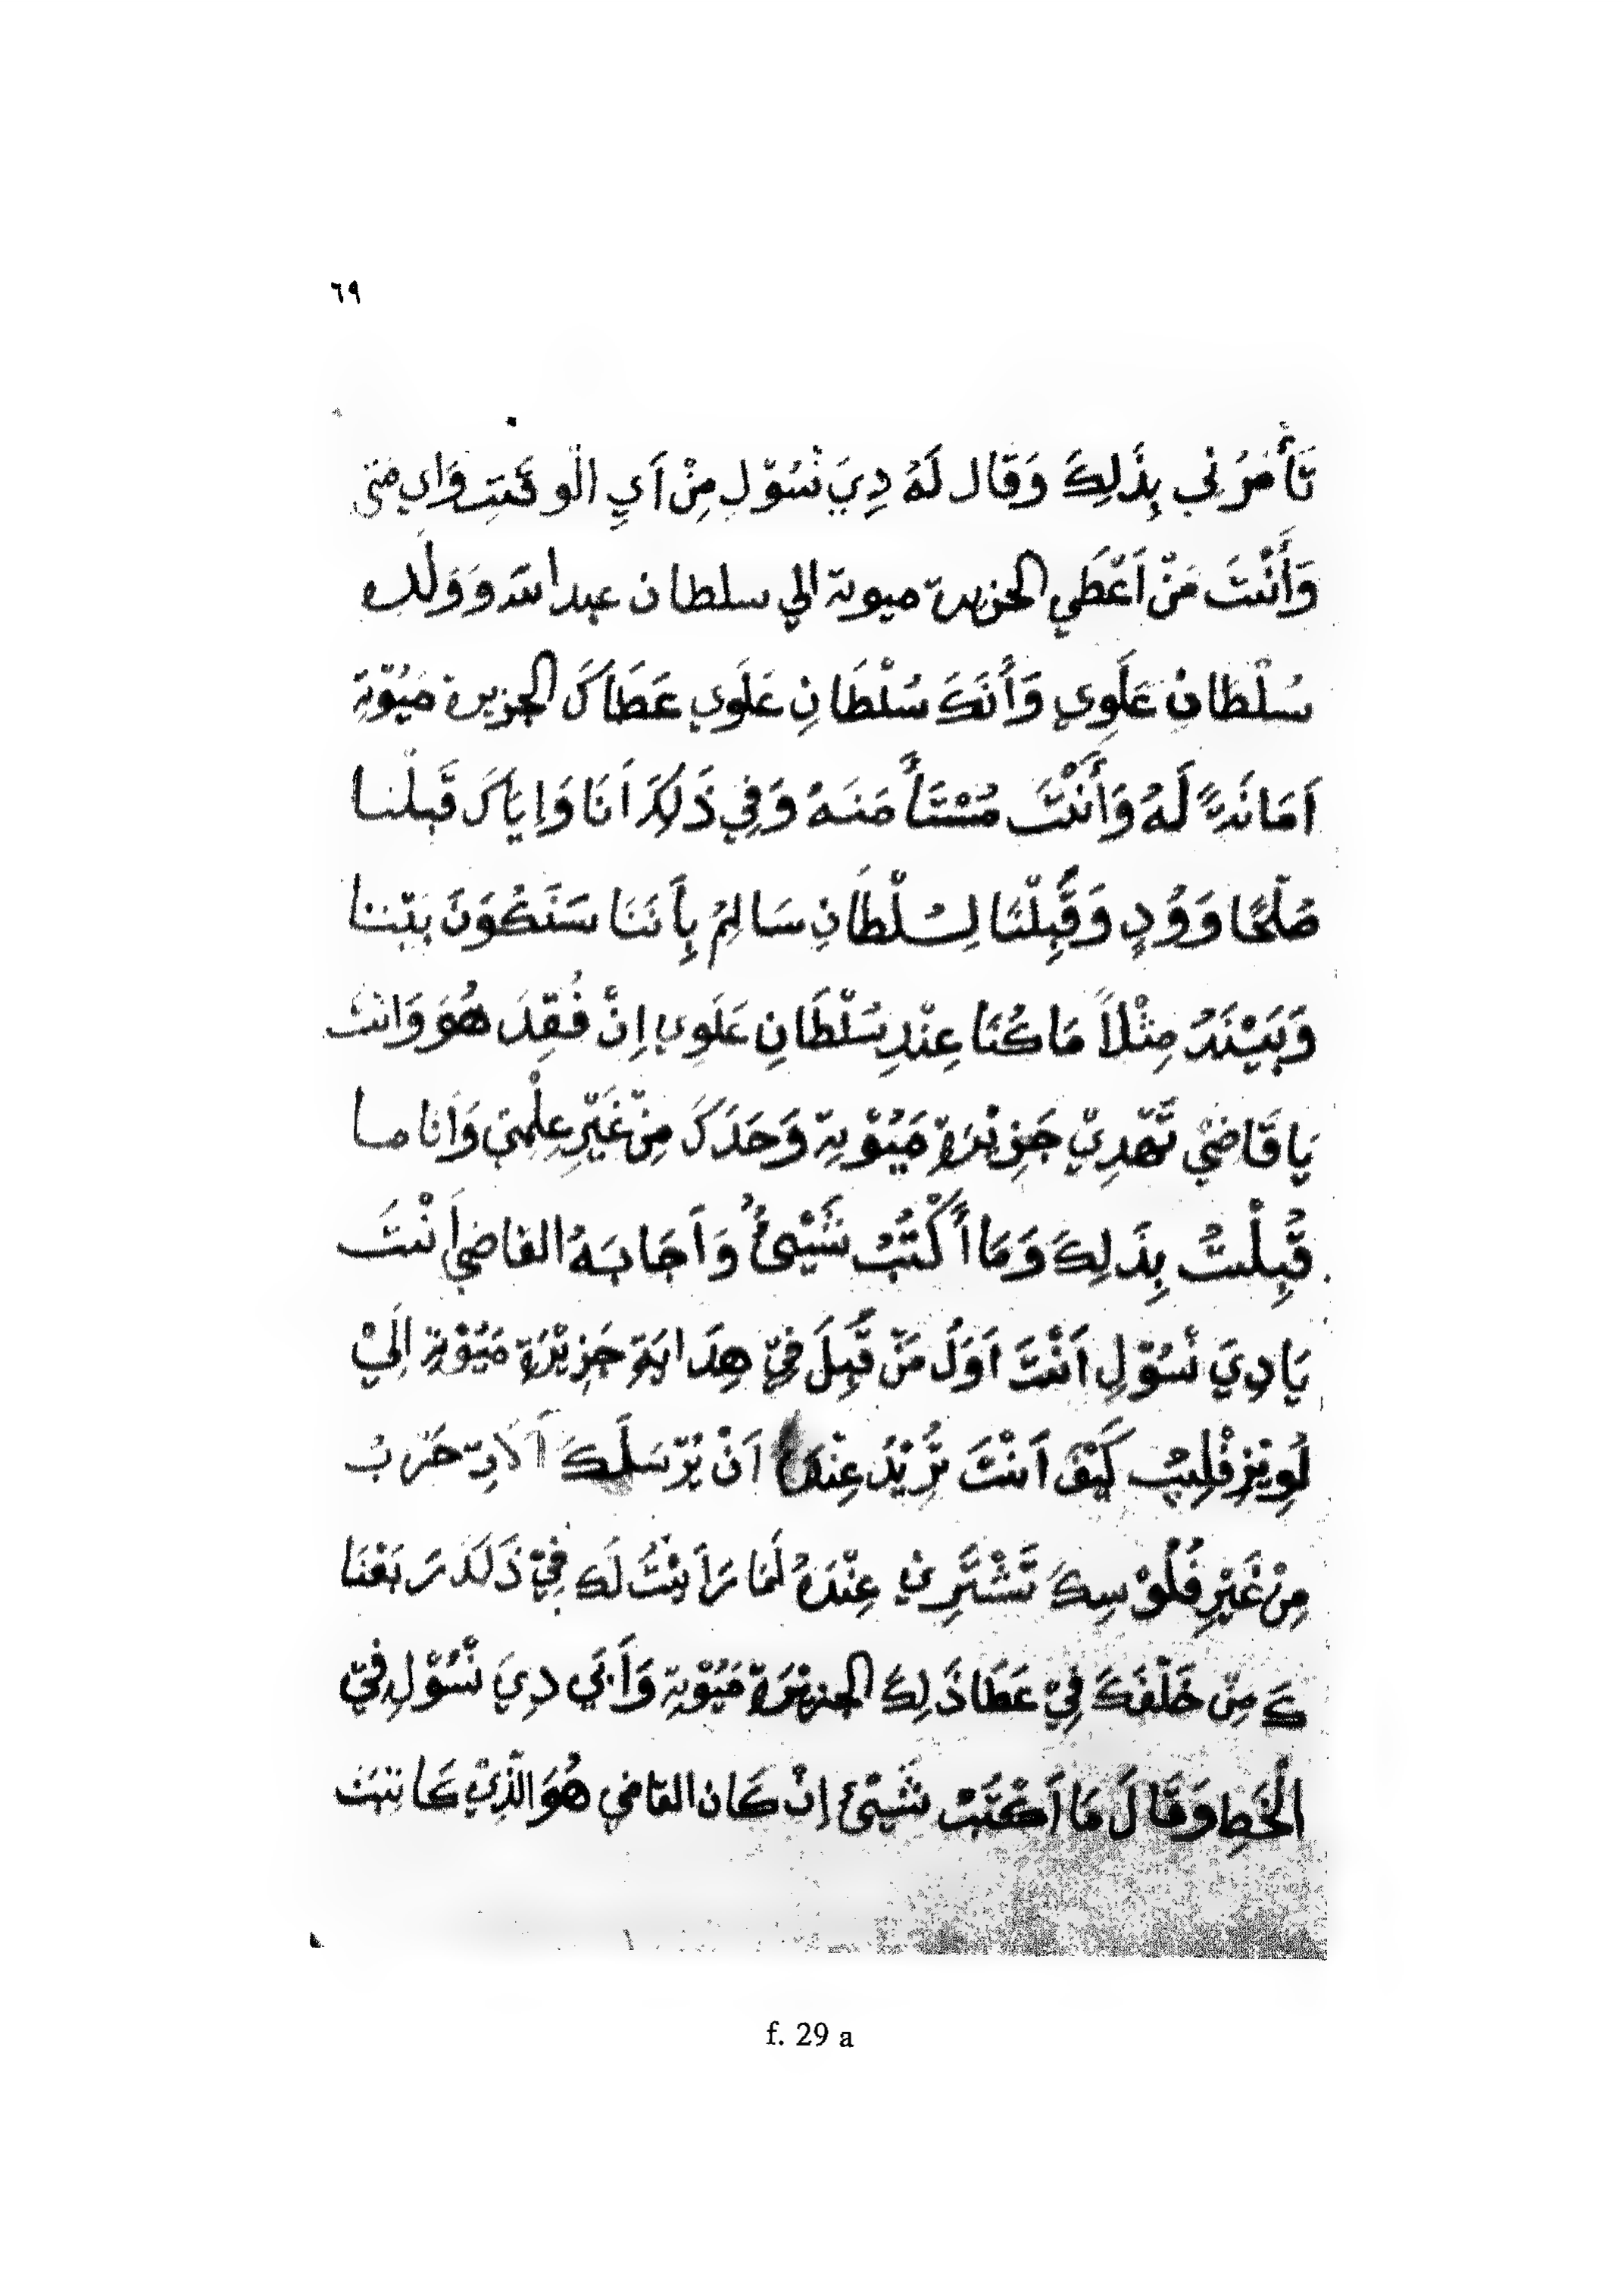 ٦٩
تَأْمُرُنِي بِذَلِكَ وَقَال لَهُ دِيَ نْسُوْلِ مِنْ اَيِ الْوقَتِ وَاي مَتى
وَأَنْتَ مَنْ اَعْطَي الجزيرة ميوتة الي سلطان عبد الله وَوَلَدِهِ
سُلْطَانِ عَلَوِي وَأَنَكَ سُلْطَانِ عَلَوِي عَطَاكَ الجزيرة مَيُوْتِة
اَمَانَةً لَهُ وَأَنْتَ مُسْتَأْمَنَهُ وَفِي ذَلِكَ اَنَا وَاِيَاكَ قَبِلْنا
صُلْحًا وَوُدٍ وَقَبِلْنَا لِسُلْطَانِ سَالِمُ بِأَنَنَا سَنَكُوَنَ بِيْنَنا
وَبَيْنَهُ مِثْلاً مَا كُنَا عِنْدِ سُلْطَانِ عَلَوِي اِنْ فُقِدَ هُوَ وَانْتَ
يَا قَاضْي تَهْدِيْ جَزِيْرَة مَيُوْتِة وَحَدَكَ مِنْ غَيْرِ عِلْمِيْ وَاَنَا مـا
قَبِلْتُ بِذَلِكَ وَمَا أَكْتُبُ شَيْئٌ وَاَجَابَهُ القاضي اَنْتَ
يَا دِيَ نْسُوْلِ اَنْتَ اَوَلُ مَنْ قَبِلَ فِيْ هِدَايَةِ جَزِيْرَة مَيُوْتِة اِلَيْ
لُوِيْزْ فْلِيْبْ كَيْفَ اَنْتَ تُرِيْدُ عِنْدَهُ اَنْ يُرْسَلَكَ اَلَاتِ حَرْبُ
مِنْ غَيْرِ فُلُوْسِكَ تَشْتَرِيْ عِنْدَهُ لَمَا رَاَيْتُ لَكَ فِيْ ذَلَكَ رَبَعْنَا
كَ مِنْ خَلْفَكَ فِيْ عَطَا ذَلِكَ الجزيْرَة مَيُوْتِة وَأَبَي دِيَ نْسُوْلِ فِيْ
الْخَطِ وَقَالَ مَا اَكْتَبْ شَيْئَ اِنْ كَان القاضي هُوَ الَّذِيْ كَاتِبَتْ
f. 29 a